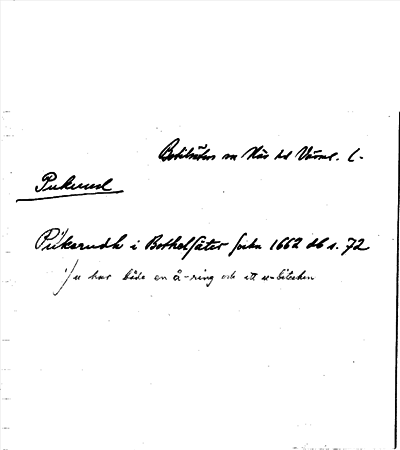 Botilsäter sn Näs hd Värml. l.
Pukerud
Pu¹⁾kerudh i Bothelsäter sochn 1662 db s. 72
¹⁾ u har både en å-ring och ett u-tecken